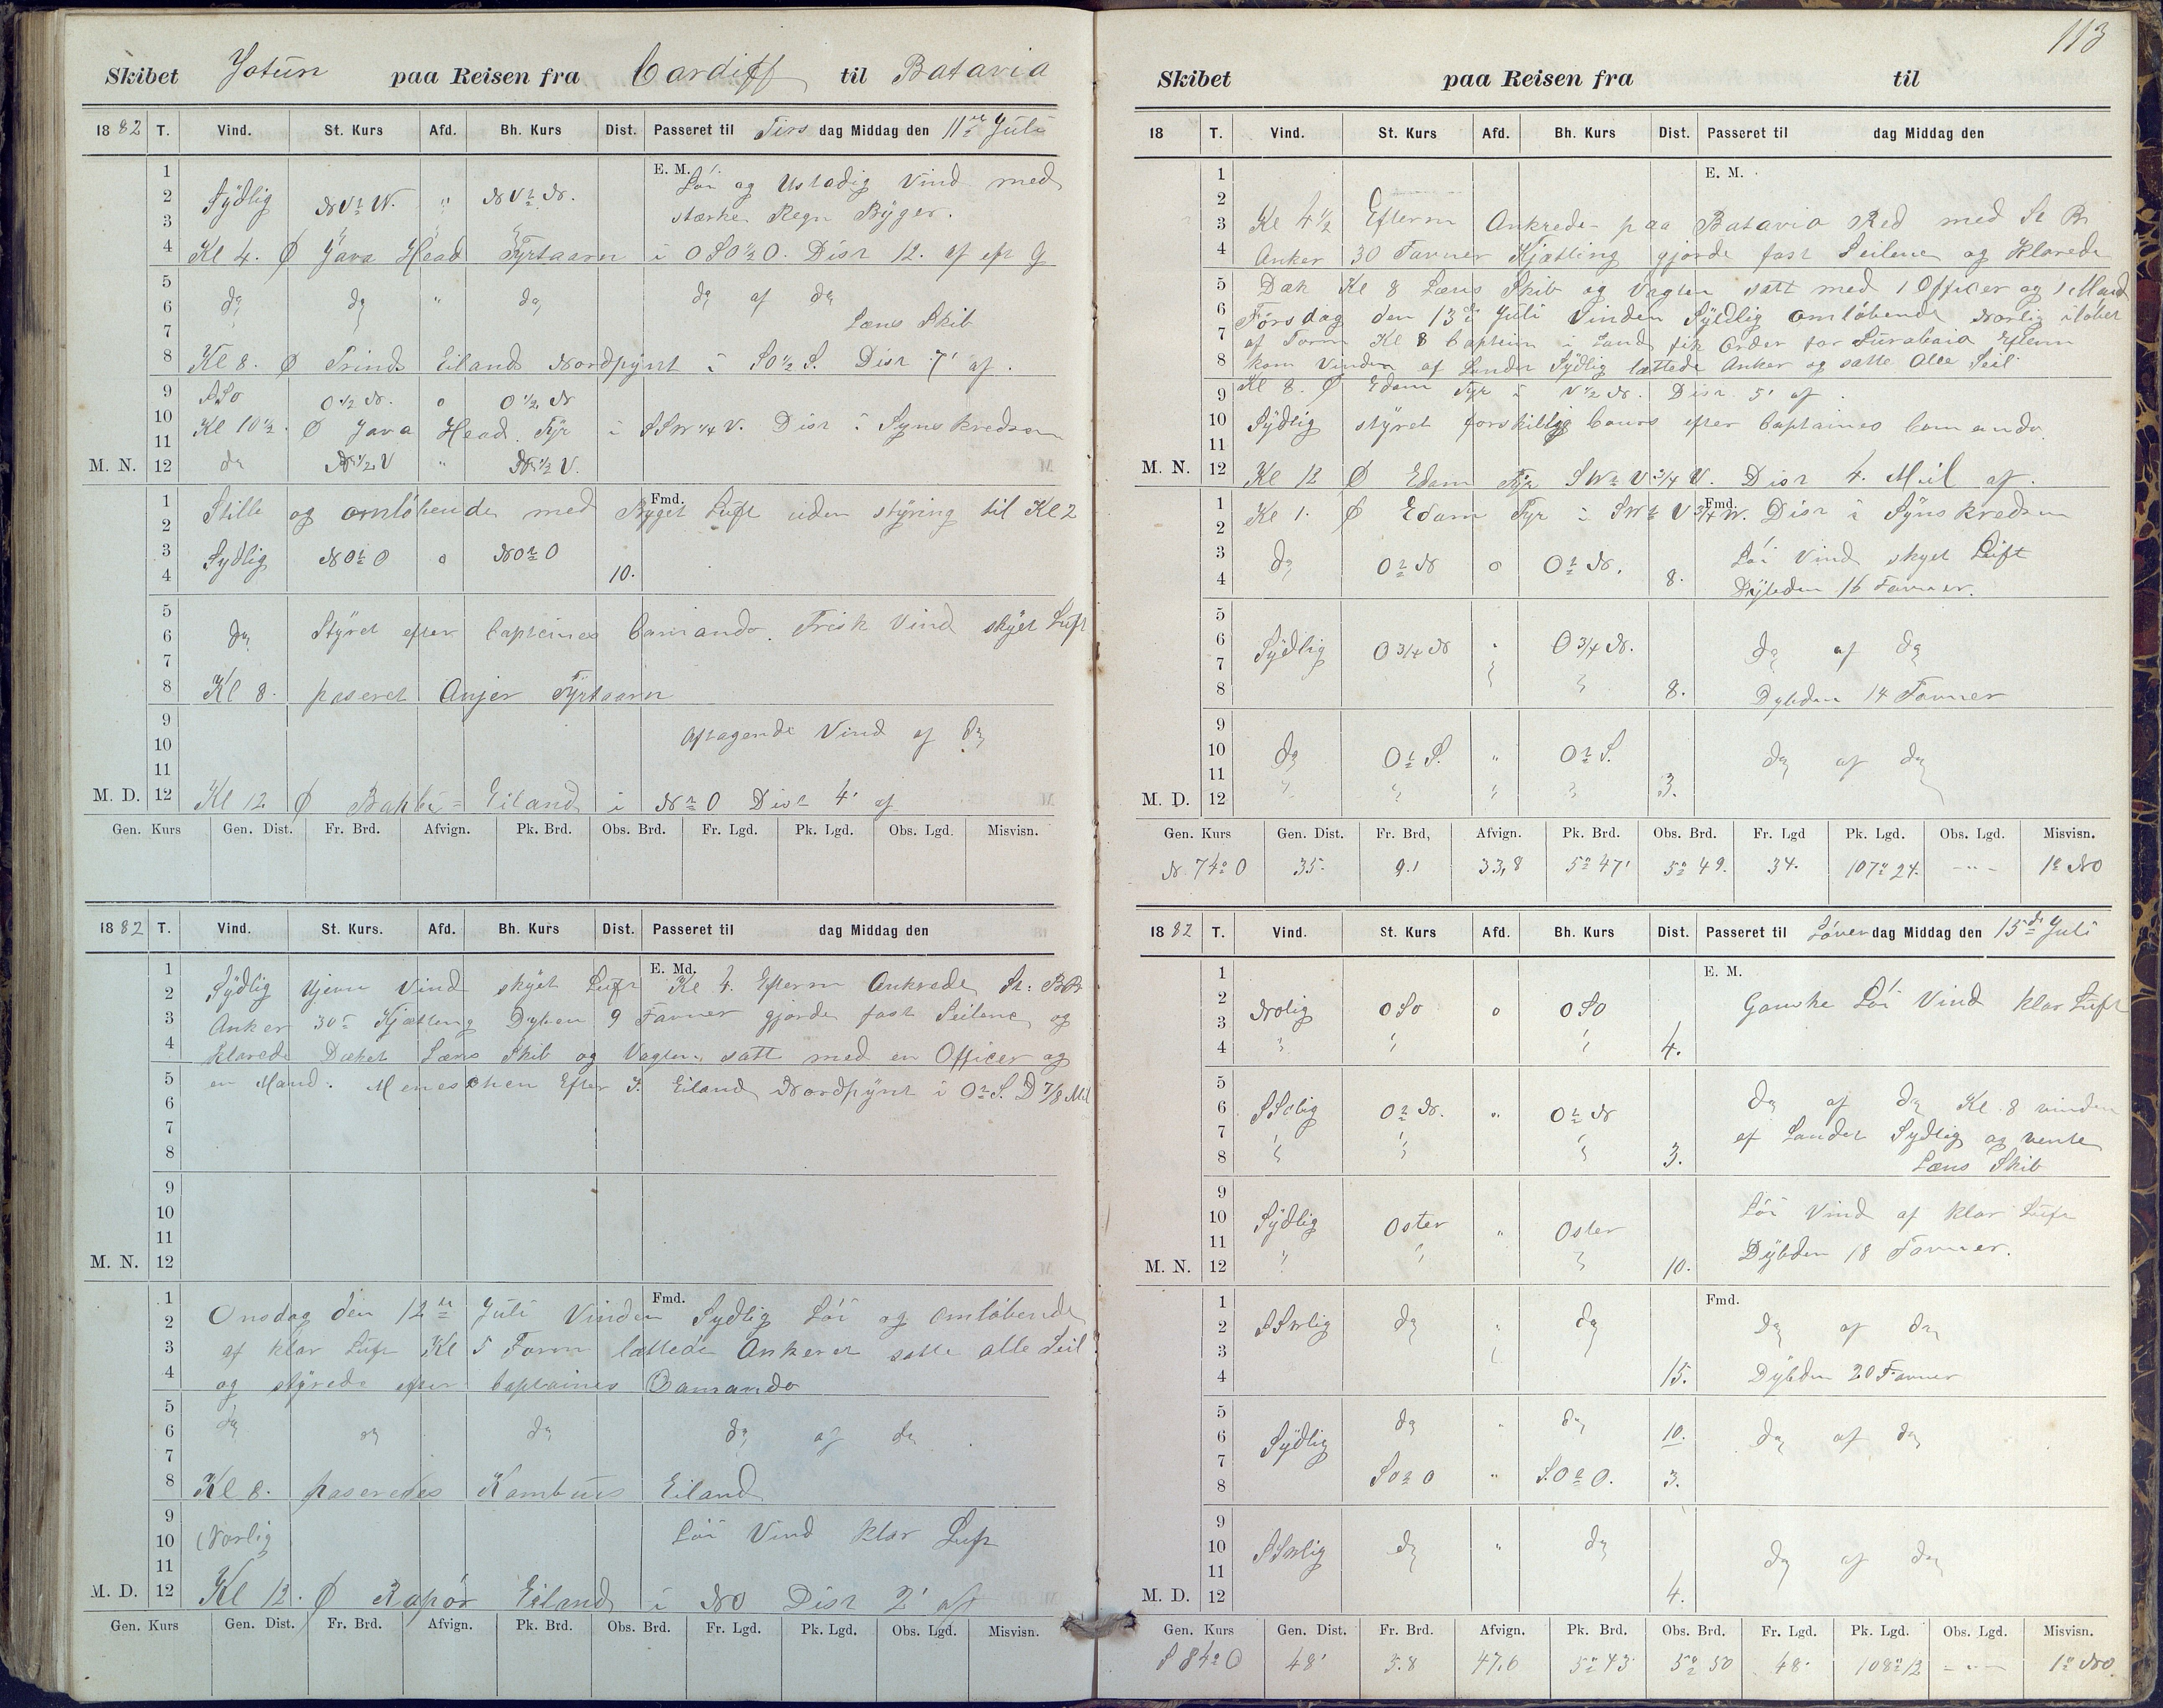 Skibet Jotun paa Reisen fra Cardiff til Batavia
1882 T. Vind. St. Kurs Afd. Bh. Kurs Dist. Passeret til Tirs dag Middag den 11te Juli
E. M.
1
2 Sydlig
3
4 Kl 4. Ø Java Head Fyrtaarn i OSO½O. Dist 12. af
Löi og Ustadig Vind med
stærke Regn Byger.
5
6 do do " do do af do
7 Læns Skib
8 Kl 8. Ø Prinds Eiland Nordpynt i SO½S. Dist 7' af.
9 SSO O½N. o O½N
10 Kl 10½. Ø Java Head Fyr i SSW¼V. Dist i Synskredsen
11
M. N. 12 do N½V " N½V.
Fmd.
1 Stille og omlöbende med Byget Luft uden styring til Kl 2
2
3 Sydlig NOtO o NOtO
4 10.
5
6 do Styret efter Capteines Comando. Frisk Vind skyet Luft
7
8 Kl 8. paseret Anjer Fyrtaarn
9
10 Aftagende Vind af do
11
M. D. 12 Kl 12 Ø Eiland i NtO Dist 4' af
Gen. Kurs Gen. Dist. Fr. Brd. Afvign. Pk. Brd. Obs. Brd. Fr. Lgd. Pk. Lgd. Obs. Lgd. Misvisn.
1882 T. Vind. St. Kurs. Afd. Bh. Kurs Dist. Passeret til dag Middag den
E. Md.
1 Sydlig Ujevn Vind skyet Luft Kl 4. Efterm Ankrede St: B
2
3 Anker 30 Kjætting Dyben 9 Favner gjorde fast Seilene og
4 klarede Dæket Læns Skib og Vagten satt med en Officer og
5 en Mand. Eiland Nordpynt i OtS. D 7/8 Mil
6
7
8
9
10
11
M. N. 12
Fmd.
1
2 Onsdag den 12te Juli Vinden Sydlig Löi og omlöbende
3 af klar Luft Kl 5 Form lættede Ankeret satte alle Seil
4 og styrede efter Captaines Comando
5
6 do do do do af do
7
8 Kl 8. paseredes Kombuis Eiland
9
10 Norlig Löi Vind klar Luft
11
M. D. 12 Kl 12. Ø Rapör Eiland i NO Dist 2' af
Gen. Kurs Gen. Dist. Fr. Brd. Afvign. Pk. Brd. Obs. Brd. Fr. Lgd. Pk. Lgd. Obs. Lgd. Misvisn.
113
Skibet paa Reisen fra til
18 T. Vind. St. Kurs Afd. Bh. Kurs Dist. Passeret til dag Middag den
E. M.
1
2
3 Kl 4½ Efterm Ankrede paa Batavia Red med St B
4 Anker 30 Favner Kjætling gjorde fast Seilene og klarede
5 Dæk Kl 8 Læns Skib og Vagten satt med 1 Officer og 1 Mand
6 Torsdag den 13de Juli Vinden Sydlig omlöbende Norlig i löbet
7 af Form Kl 8 Captein i Land fik Order for Surabaia Efterm
8 kom Vinden af Landet Sydlig lættede Anker og satte Alle Seil
9 Kl 8. Ø Edam Fyr i V½N. Dist 5' af.
10 Sydlig styret forskillige Cours efter Captaines Comando
11
M. N. 12 Kl 12 Ø Edam Fyr SWtV¾V. Dist 4. Mil af.
Fmd.
1 Kl 1. Ø Edam Fyr i SWtV¾W. Dist i Synskredsen
2
3 do OtN o OtN. Löi Vind skyet Luft
4 8. Dybden 16 Favner.
5
6 Sydlig O¾N " O¾N. do af do
7
8 8. Dybden 14 Favner
9
10 do OtS. " OtS. do af do
11
M. D. 12 " " " " 3.
Gen. Kurs Gen. Dist. Fr. Brd, Afvign. Pk. Brd. Obs. Brd. Fr. Lgd Pk. Lgd. Obs. Lgd. Misvisn.
N 74° O 35. 9.1 33,8 5° 47' 5° 49. 34. 107° 24. - " - 1° NO
1882 T. Vind. St. Kurs Afd. Bh. Kurs Dist. Passeret til Löver dag Middag den 15de Juli
E. M.
1
2 Nolig OSO o OSO Ganske Löi Vind klar Luft
3
4 " " " 4.
5
6 SSolig OtN. " OtN do af do Kl 8 vinden
7 " " " af Landet Sydlig og vente
8 3. Læns Skib
9
10 Sydlig Oster " Oster Löi Vind af klar Luft
11
M. N. 12 " " " 10. Dybden 18 Favner.
Fmd.
1
2 SSWlig do " do do af do
3
4 15. Dybden 20 Favner
5 do " do 10.
6 Sydlig do af do
7
8 SOtO " SOtO. 3.
9
10 SSWlig do " do do af do
11
M. D. 12 4.
Gen. Kurs Gen. Dist. Fr. Brd. Afvign. Pk. Brd. Obs. Brd. Fr. Lgd. Pk. Lgd. Obs. Lgd. Misvisn.
S 84° O 48' 5.8 47,6 5° 43 5° 50 48. 108° 12 - " - 1° NO